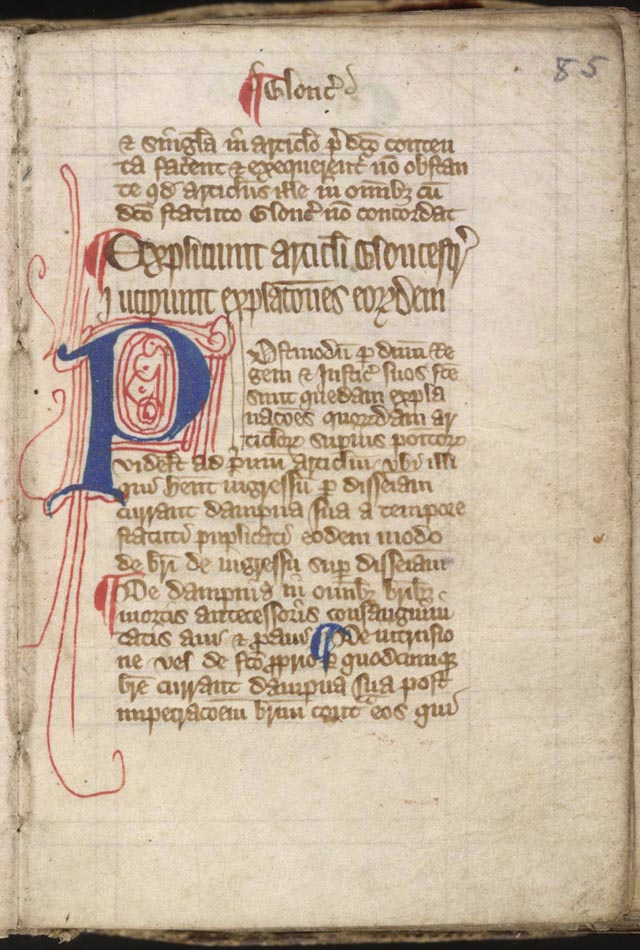 85
¶ Glouc̄
⁊ singl̄a in articl̄o p̄dc̄o conten
ta facent ⁊ exequerent᷑ nō obstan
te qd̛ articl̄us ille in om̄ibȝ cū
dc̄o statuto Glouc̄ nō concordat
¶ Expliciunt articl̄i Gloucestr̄
Incipiunt explac̄ōnes eorꝝdem
Postmodū p̱ dn̄m Re
gem ⁊ Justic̄ suos fc̄e
sunt quedam expla
nac̄ōes quorꝝdam ar
ticl̄orꝝ sup̱ius po͛itorꝝ
videlt̄ ad p͛mum articl̄m vbi illi
qui h̄ent ingressū p̱ disseiām
currant dampna sua a tempore
statuti puplicati eodem modo
de br̄i de ingressu sup̱ disseiām
¶ De dampnis in om̄ibȝ br̄ibȝ
mortis antecessoris consanguini
tatis aui ⁊ p̱aui ¶ De intrusio
ne vel de fc̄o ꝓprio p̱ quodcumqȝ
br̄e currant dampna sua post
impetrac̄ōem br̄ium cont͛ eos qui